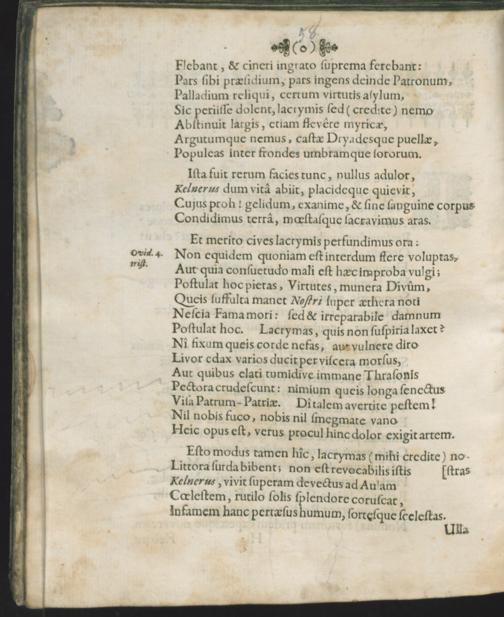 58
(o)
Flebant, & cineri ingrato suprema ferebant:
Pars sibi præsidium, pars ingens deinde Patronum,
Palladium reliqui, certum virtutis asylum,
Sic periisse dolent, lacrymis sed (credite) nemo
Abstinuit largis, etiam flevêre myricæ,
Argutumque nemus, castæ Dryadesque puellæ,
Populeas inter frondes umbramque sororum.
Ista fuit rerum facies tunc, nullus adulor,
Kelnerus dum vitâ abiit, placideque quievit,
Cujus proh! gelidum, exanime, & sine sanguine corpus
Condidimus terrâ, mœstasque sacravimus aras.
Et merito cives lacrymis perfundimus ora:
Ovid. 4. Non equidem quoniam est interdum flere voluptas,
trist. Aut quia consuetudo mali est hæc improba vulgi;
Postulat hoc pietas, Virtutes, munera Divûm,
Queis suffulta manet Nostri super æthera noti
Nescia Fama mori: sed & irreparabile damnum
Postulat hoc. Lacrymas, quis non suspiria laxet?
Nî fixum queis corde nefas, aut vulnere diro
Livor edax varios ducit per viscera morsus,
Aut quibus elati tumidive immane Thrasonis
Pectora crudescunt: nimium queis longa senectus
Visa Patrum-Patriæ. Di talem avertite pestem!
Nil nobis fuco, nobis nil smegmate vano
Heic opus est, verus procul hinc dolor exigit artem.
Esto modus tamen hîc, lacrymas (mihi credite) no-
Littora surda bibent; non est revocabilis istis [stras
Kelnerus, vivit superam devectus ad Aulam
Cœlestem, rutilo solis splendore coruscat,
Infamem hanc pertæsus humum, sortęsque scelestas.
Ulla